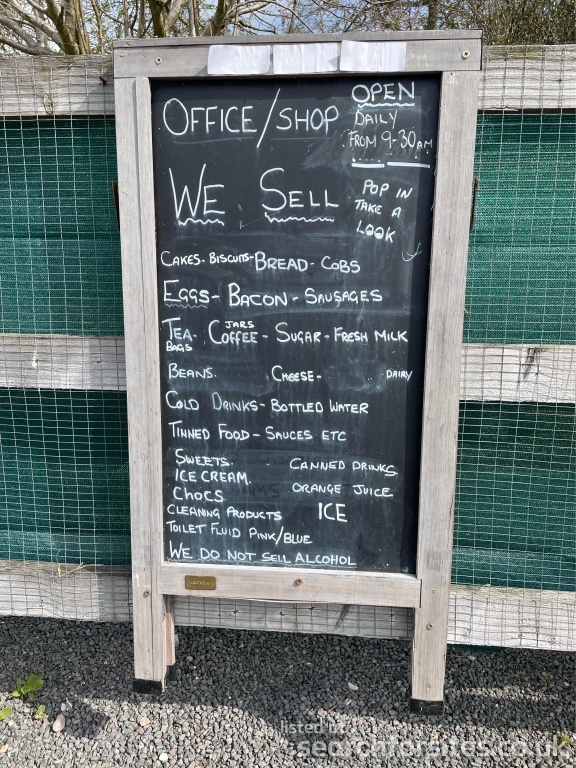 OFFICE/SHOP
OPEN
DAILY
FROM 9-30AM
WE SELL
POP IN
TAKE A
LOOK
CAKES - BISCUITS - BREAD - COBS
EGGS - BACON - SAUSAGES
TEA- BAGS JARS COFFEE - SUGAR - FRESH MILK
BEANS. CHEESE - DAIRY
COLD DRINKS - BOTTLED WATER
TINNED FOOD - SAUCES ETC
SWEETS. CANNED DRINKS
ICE CREAM.
CHOCS ORANGE JUICE
CLEANING PRODUCTS ICE
TOILET FLUID PINK/BLUE
WE DO NOT SELL ALCOHOL
listed at
searchforsites.co.uk